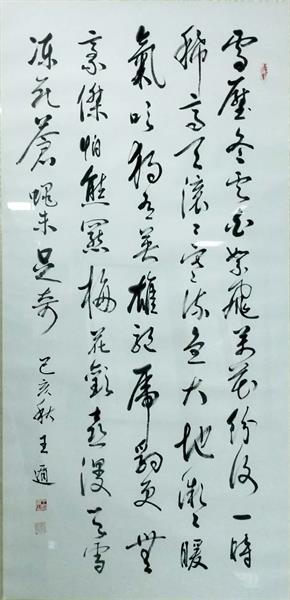 雪壓冬雲白絮飛萬花紛谢一時
稀高天滚〻寒流急大地微〻暖
氣吹獨有英雄驱虎豹更無
豪傑怕熊羆梅花歡喜漫天雪
凍死蒼蠅未足奇
己亥秋王